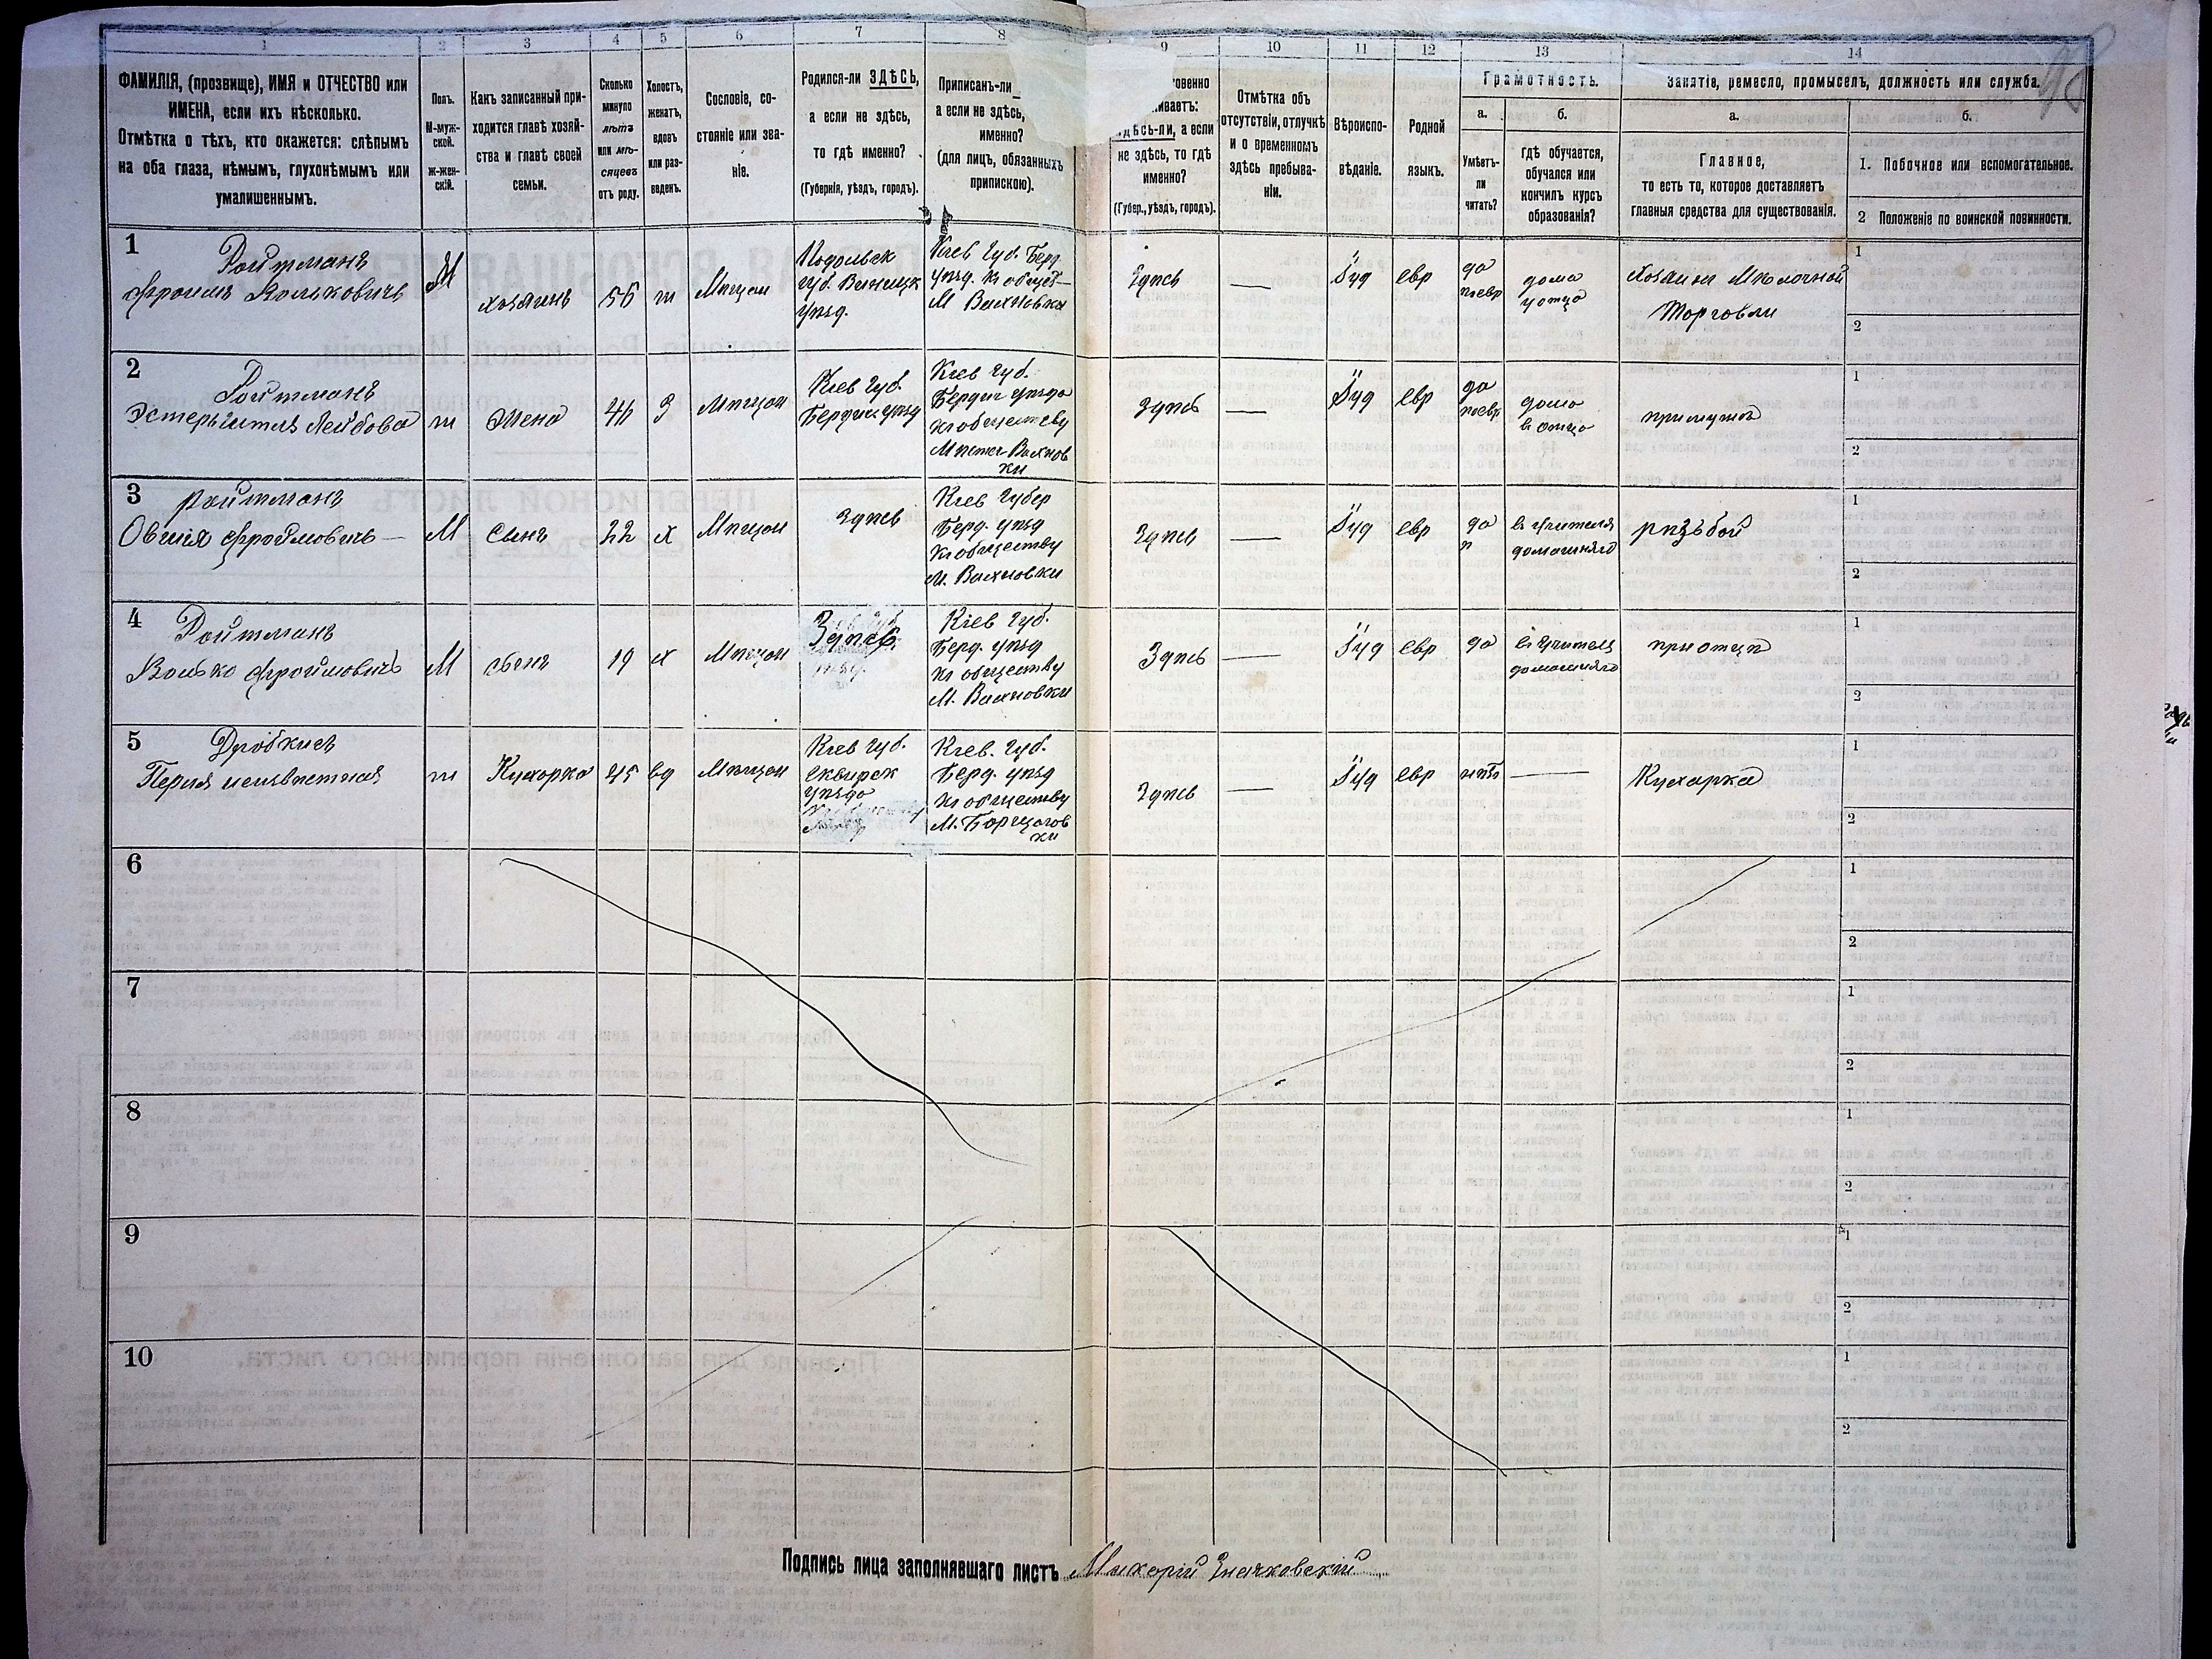 1 2 3 4 5 6 7 8 9 10 11 12 13 14
ФАМИЛІЯ, (прозвище), ИМЯ и ОТЧЕСТВО или
ИМЕНА, если ихъ нѣсколько.
Отмѣтка о тѣхъ, кто окажется: слѣпымъ
на оба глаза, нѣмымъ, глухонѣмымъ или
умалишеннымъ.
Полъ.
М-муж-
ской.
Ж-жен-
скій.
Какъ записанный при-
ходится главѣ хозяй-
ства и главѣ своей
семьи.
Сколько
минуло
лѣтъ
или мѣ-
сяцевъ
отъ роду.
Холостъ,
женатъ,
вдовъ
или раз-
веденъ.
Сословіе, со-
стояніе или зва-
ніе.
Родился-ли ЗДѢСЬ,
а если не здѣсь,
то гдѣ именно?
(Губернія, уѣздъ, городъ).
Приписанъ-ли
а если не здѣсь,
именно?
(для лицъ, обязанныхъ
припискою).
овенно
иваетъ:
ДѢСЬ-ЛИ, а если
не здѣсь, то гдѣ
именно?
(Губер., уѣздъ, городъ).
Отмѣтка объ
отсутствіи, отлучкѣ
и о временномъ
здѣсь пребыва-
ніи.
Вѣроиспо-
вѣданіе.
Родной
языкъ.
Грамотность.
а.
Умѣетъ-
ли
читать?
б.
гдѣ обучается,
обучался или
кончилъ курсъ
образованія?
Занятіе, ремесло, промыселъ, должность или служба.
а.
Главное,
то есть то, которое доставляетъ
главныя средства для существованія.
б.
1. Побочное или вспомогательное.
2 Положеніе по воинской повинности.
1
Ройтманъ
Фроимъ Вольковичъ
М
хозяинъ
56
ж
Мѣщан
Подольск
губ. Винницк
уѣзд.
Кіев Губ. Берд.
уѣзд. къ общес-
М Вахновка
Здѣсь
—
Іуд
евр
да
поевр
дома
у отца
Хозяин Мелочной
Торговли
1
2
2
Ройтманъ
Эстеръ Лейбова
ж
Жена
46
З
Мѣщан
Кіев Губ.
Бердич уѣзд
Кіев Губ.
Бердич уѣзда
къ обществу
Мѣстеч Вахнов
ки
Здѣсь
—
Іуд
евр
да
поевр
дома
в отца
при мужѣ
1
2
3
Ройтманъ
Овшія Фроимовичъ —
М
Сынъ
22
х
Мѣщан
Здѣсь
Кіев Губер
Берд. уѣзд
къ обществу
М. Вахновки
Здѣсь
—
Іуд
евр
да
п
в учителя
домашняго
рѣзьбой
1
2
4
Ройтманъ
Волько Фроимовичъ
М
сынъ
19
х
Мѣщан
Здѣсь
Кіев Губ.
Берд. уѣзд
къ обществу
М. Вахновки
Здѣсь
—
Іуд
евр
да
в учителя
домашняго
при отцѣ
1
2
5
Дробкисъ
Перля неизвѣстная
ж
Кухарка
45
вд
Мѣщан
Кіев Губ.
Сквирск
уѣзда
Кіев. Губ.
Берд. уѣзд
къ обществу
М. Борщагов
ки
Здѣсь
—
Іуд
евр
нѣтъ
—
Кухарка
1
2
6
1
2
7
1
2
8
1
2
9
1
2
10
1
2
Подпись лица заполнявшаго листъ